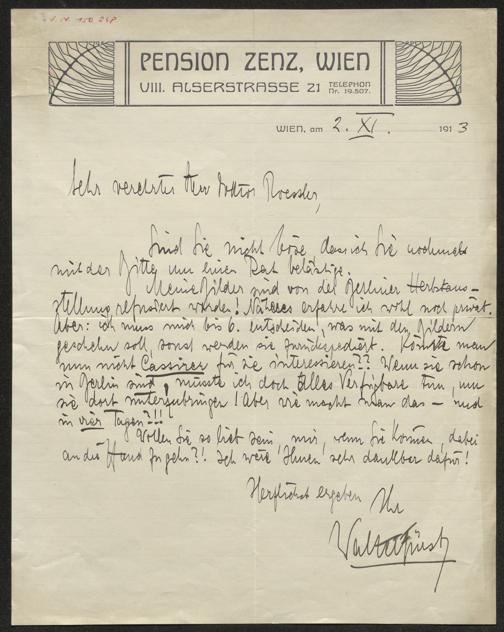 J. N. 150 248
PENSION ZENZ, WIEN
VIII. ALSERSTRASSE 21 TELEPHON Nr. 19.507.
WIEN, am 2. XI. 1913
Sehr verehrter Herr Doktor Roessler,
Sind Sie nicht böse dass ich Sie nochmals
mit der Bitte um einen Rat belästige.
Meine Bilder sind von der Berliner Herbstaus-
stellung refusiert worden! Näheres erfahre ich wohl noch privat.
Aber: ich muss mich bis 6. entscheiden, was mit den Bildern
geschehen soll, sonst werden sie zurückspediert. Könnte man
nun nicht Cassirer für sie interessieren?? Wenn sie schon
in Berlin sind, müsste ich doch alles Verfügbare tun, um
sie dort unterzubringen! Aber wie macht man das – und
in vier Tagen?!!
Wollen Sie so lieb sein, mir, wenn Sie können, dabei
an die Hand zu gehn?! Ich wäre Ihnen sehr dankbar dafür!
Herzlichst ergeben Ihr
Walter Fürst